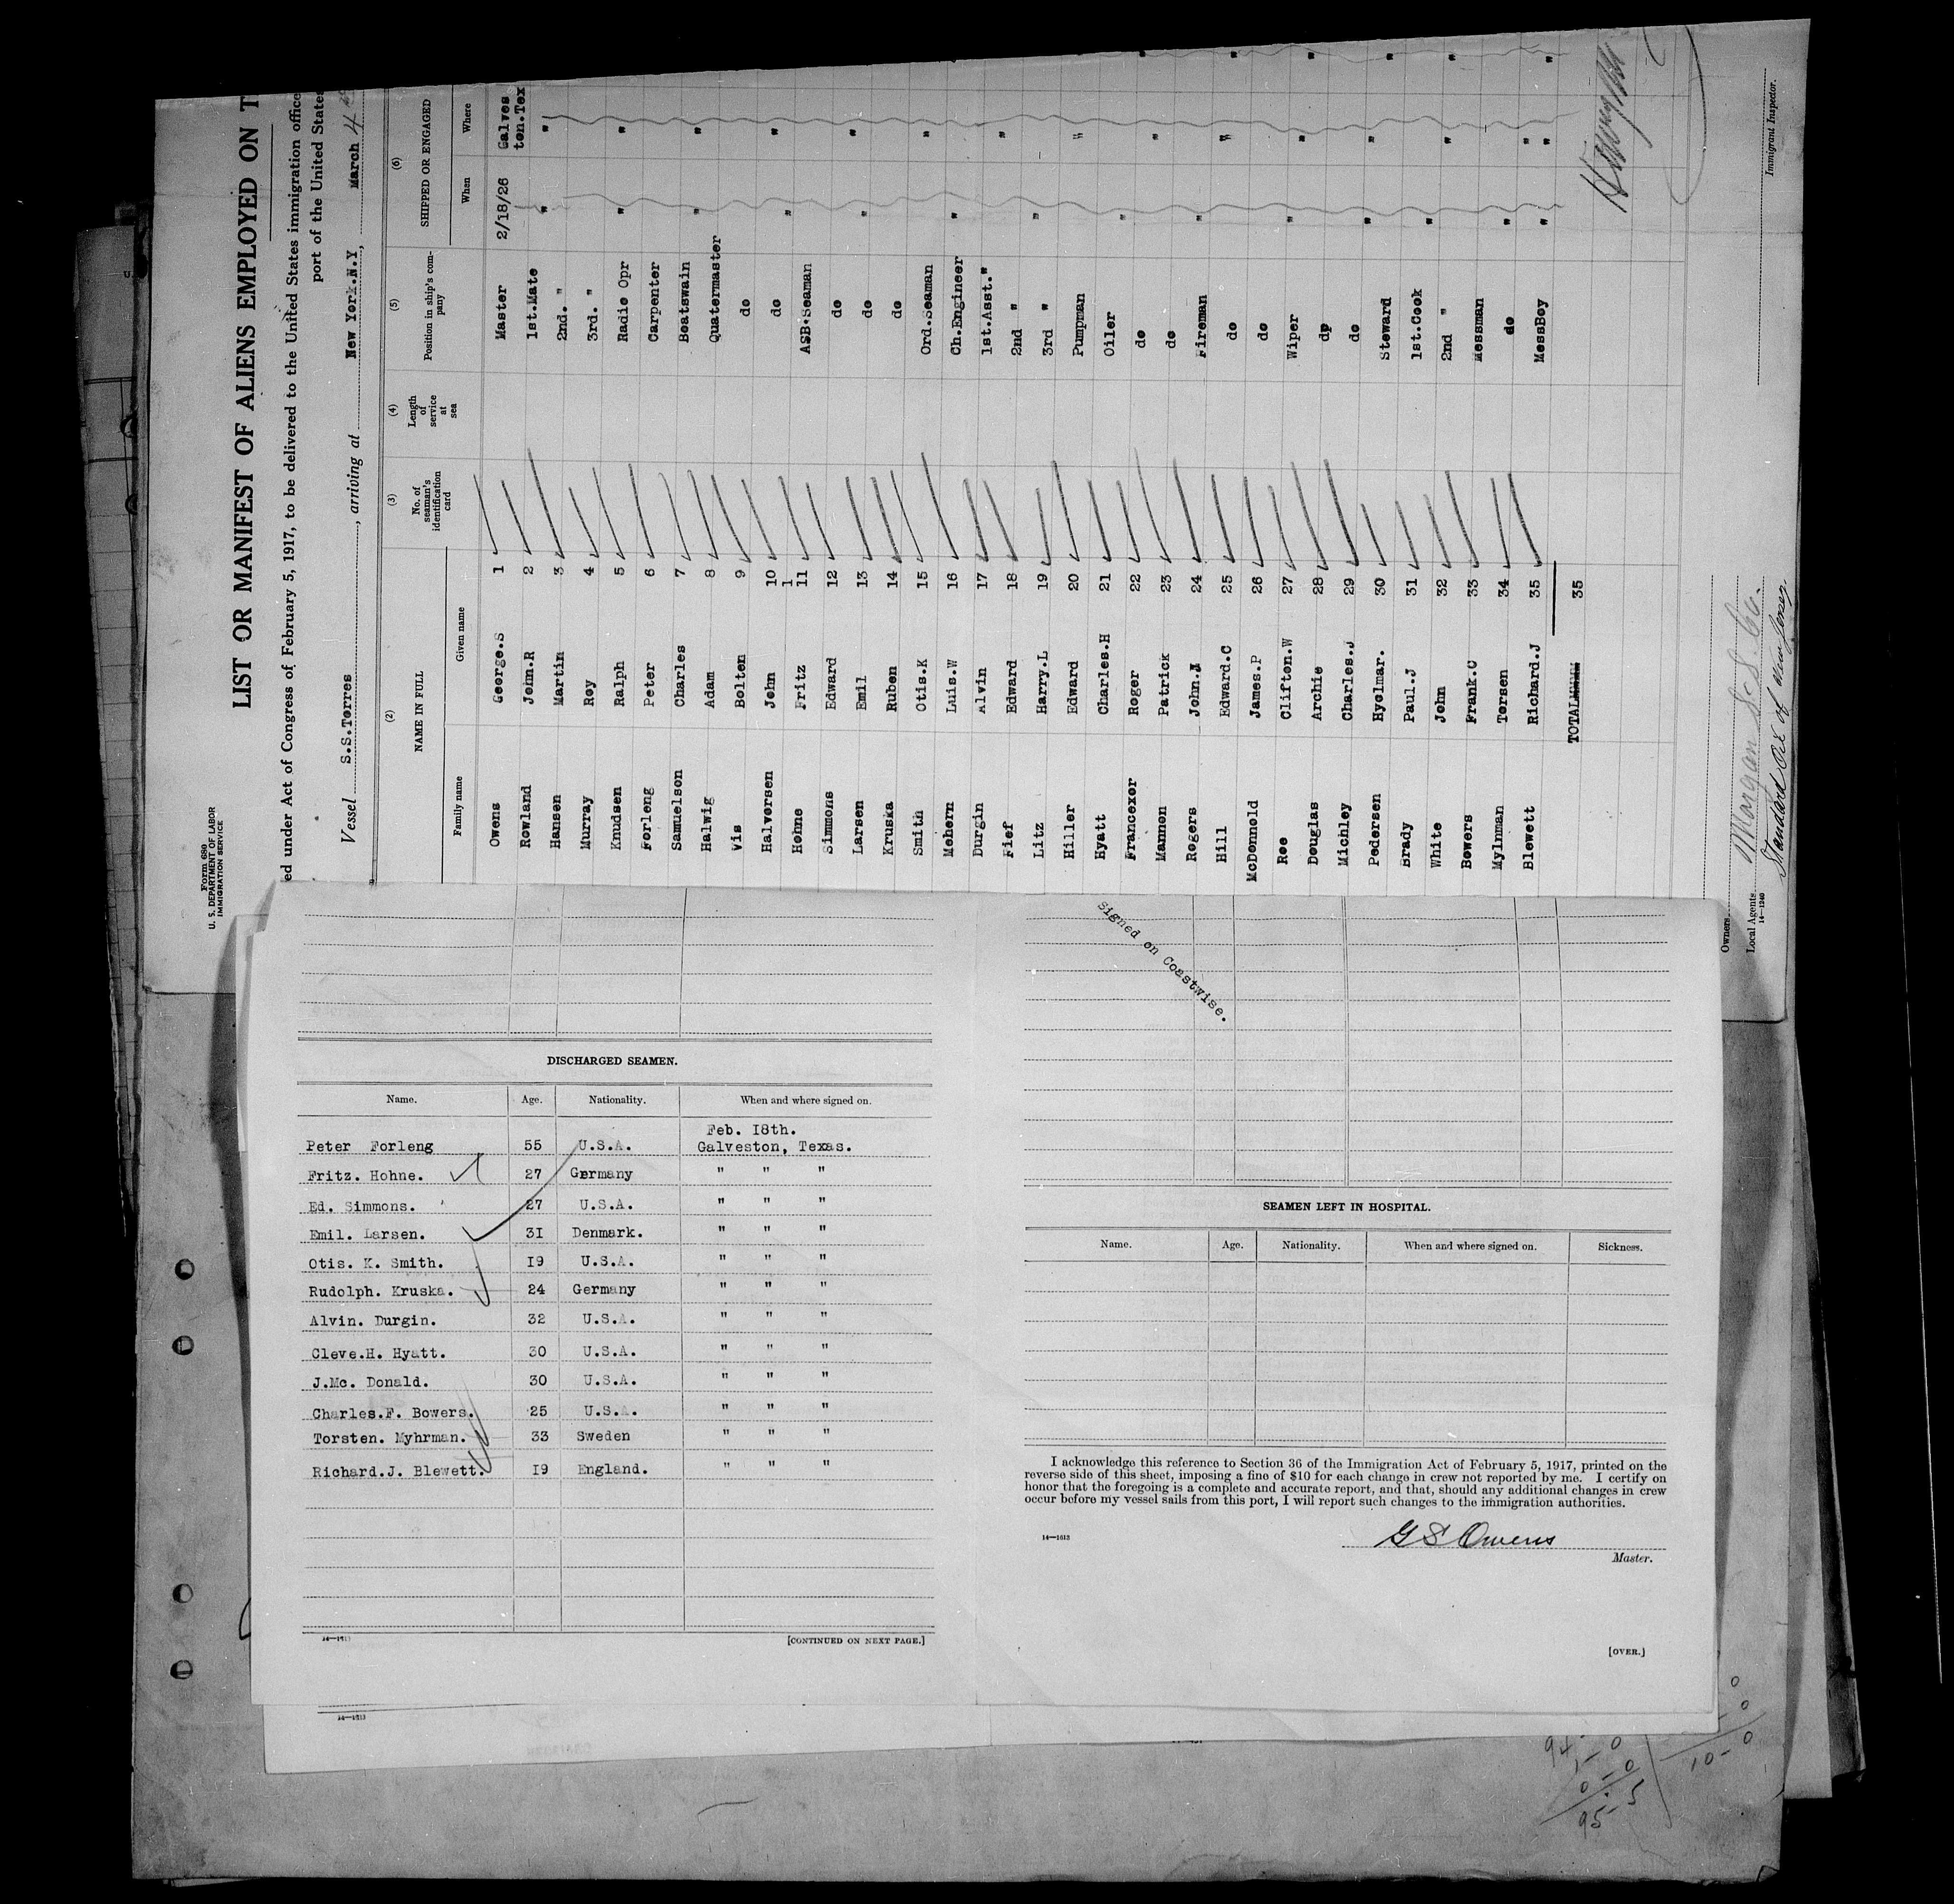 Form 680
U. S. DEPARTMENT OF LABOR
IMMIGRATION SERVICE
LIST OR MANIFEST OF ALIENS EMPLOYED ON T
ed under Act of Congress of February 5, 1917, to be delivered to the United States immigration office
port of the United States
Vessel S.S.Torres, arriving at New York.N.Y, March 4
(2) (3) (4) (5) (6)
NAME IN FULL No. of seaman's identification card Length of service at sea Position in ship's company SHIPPED OR ENGAGED
Family name Given name When Where
Owens George.S 1 Master 2/18/26 Galveston.Tex
Rowland John.R 2 1st.Mate " "
Hansen Martin 3 2nd. "
Murray Roy 4 3rd. "
Knudsen Ralph 5 Radio Opr " "
Forleng Peter 6 Carpenter
Samuelson Charles 7 Boatswain " "
Halwig Adam 8 Quatermaster
Vis Bolton 9 do
Halversen John 10 do " "
Hohne Fritz 11 ASB.Seaman
Simmons Edward 12 do
Larsen Emil 13 do " "
Kruska Ruben 14 do
Smith Otis.K 15 Ord.Seaman "
Mehern Luis.W 16 Ch.Engineer "
Durgin Alvin 17 1st.Asst."
Fief Edward 18 2nd " "
Litz Harry.L 19 3rd " "
Hiller Edward 20 Pumpman "
Hyatt Charles.H 21 Oiler
Francexor Roger 22 do "
Mannon Patrick 23 do "
Rogers John.J 24 Fireman "
Hill Edward.C 25 do "
McDonnold James.P 26 do
Roe Clifton.W 27 Wiper " "
Douglas Archie 28 do
Michley Charles.J 29 do
Pedersen Hyelmar. 30 Steward " "
Brady Paul.J 31 1st.Cook
White John 32 2nd " " "
Bowers Frank.C 33 Messman
Mylnman Torsen 34 do " "
Blewett Richard.J 35 MessBoy " "
TOTAL 35
Immigrant Inspector.
Owners
Local Agents Morgan S.S. Co.
Standard Oil of New Jersey.
14—1240
Signed on Coastwise.
DISCHARGED SEAMEN.
Name. Age. Nationality. When and where signed on.
Feb. 18th.
Peter Forleng 55 U.S.A. Galveston, Texas.
Fritz. Hohne. 27 Germany " " "
Ed. Simmons. 27 U.S.A. " " "
Emil. Larsen. 31 Denmark. " " "
Otis. K. Smith. 19 U.S.A. " " "
Rudolph. Kruska. 24 Germany " " "
Alvin. Durgin. 32 U.S.A. " " "
Cleve.H. Hyatt. 30 U.S.A. " " "
J.Mc. Donald. 30 U.S.A. " " "
Charles.F. Bowers. 25 U.S.A. " " "
Torsten. Myhrman. 33 Sweden " " "
Richard.J. Blewett. 19 England. " " "
14—1613
[CONTINUED ON NEXT PAGE.]
14—1613
SEAMEN LEFT IN HOSPITAL.
Name. Age. Nationality. When and where signed on. Sickness.
I acknowledge this reference to Section 36 of the Immigration Act of February 5, 1917, printed on the
reverse side of this sheet, imposing a fine of $10 for each change in crew not reported by me. I certify on
honor that the foregoing is a complete and accurate report, and that, should any additional changes in crew
occur before my vessel sails from this port, I will report such changes to the immigration authorities.
14—1613
G S Owens
Master.
[OVER.]
94
95-5
10-0